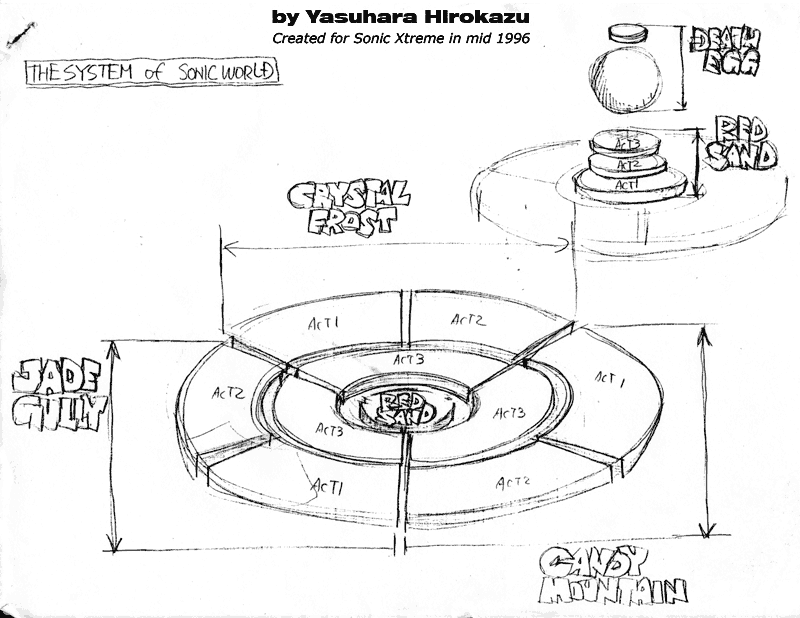 by Yasuhara HIrokazu
Created for Sonic Xtreme in mid 1996
THE SYSTEM of SONIC WORLD
DEATH
EGG
RED
SAND
ACT3
ACT2
ACT1
CRYSTAL
FROST
ACT1
ACT2
ACT3
JADE
GULLY
ACT2
ACT1
RED
SAND
ACT3
ACT3
ACT1
ACT2
CANDY
MOUNTAIN